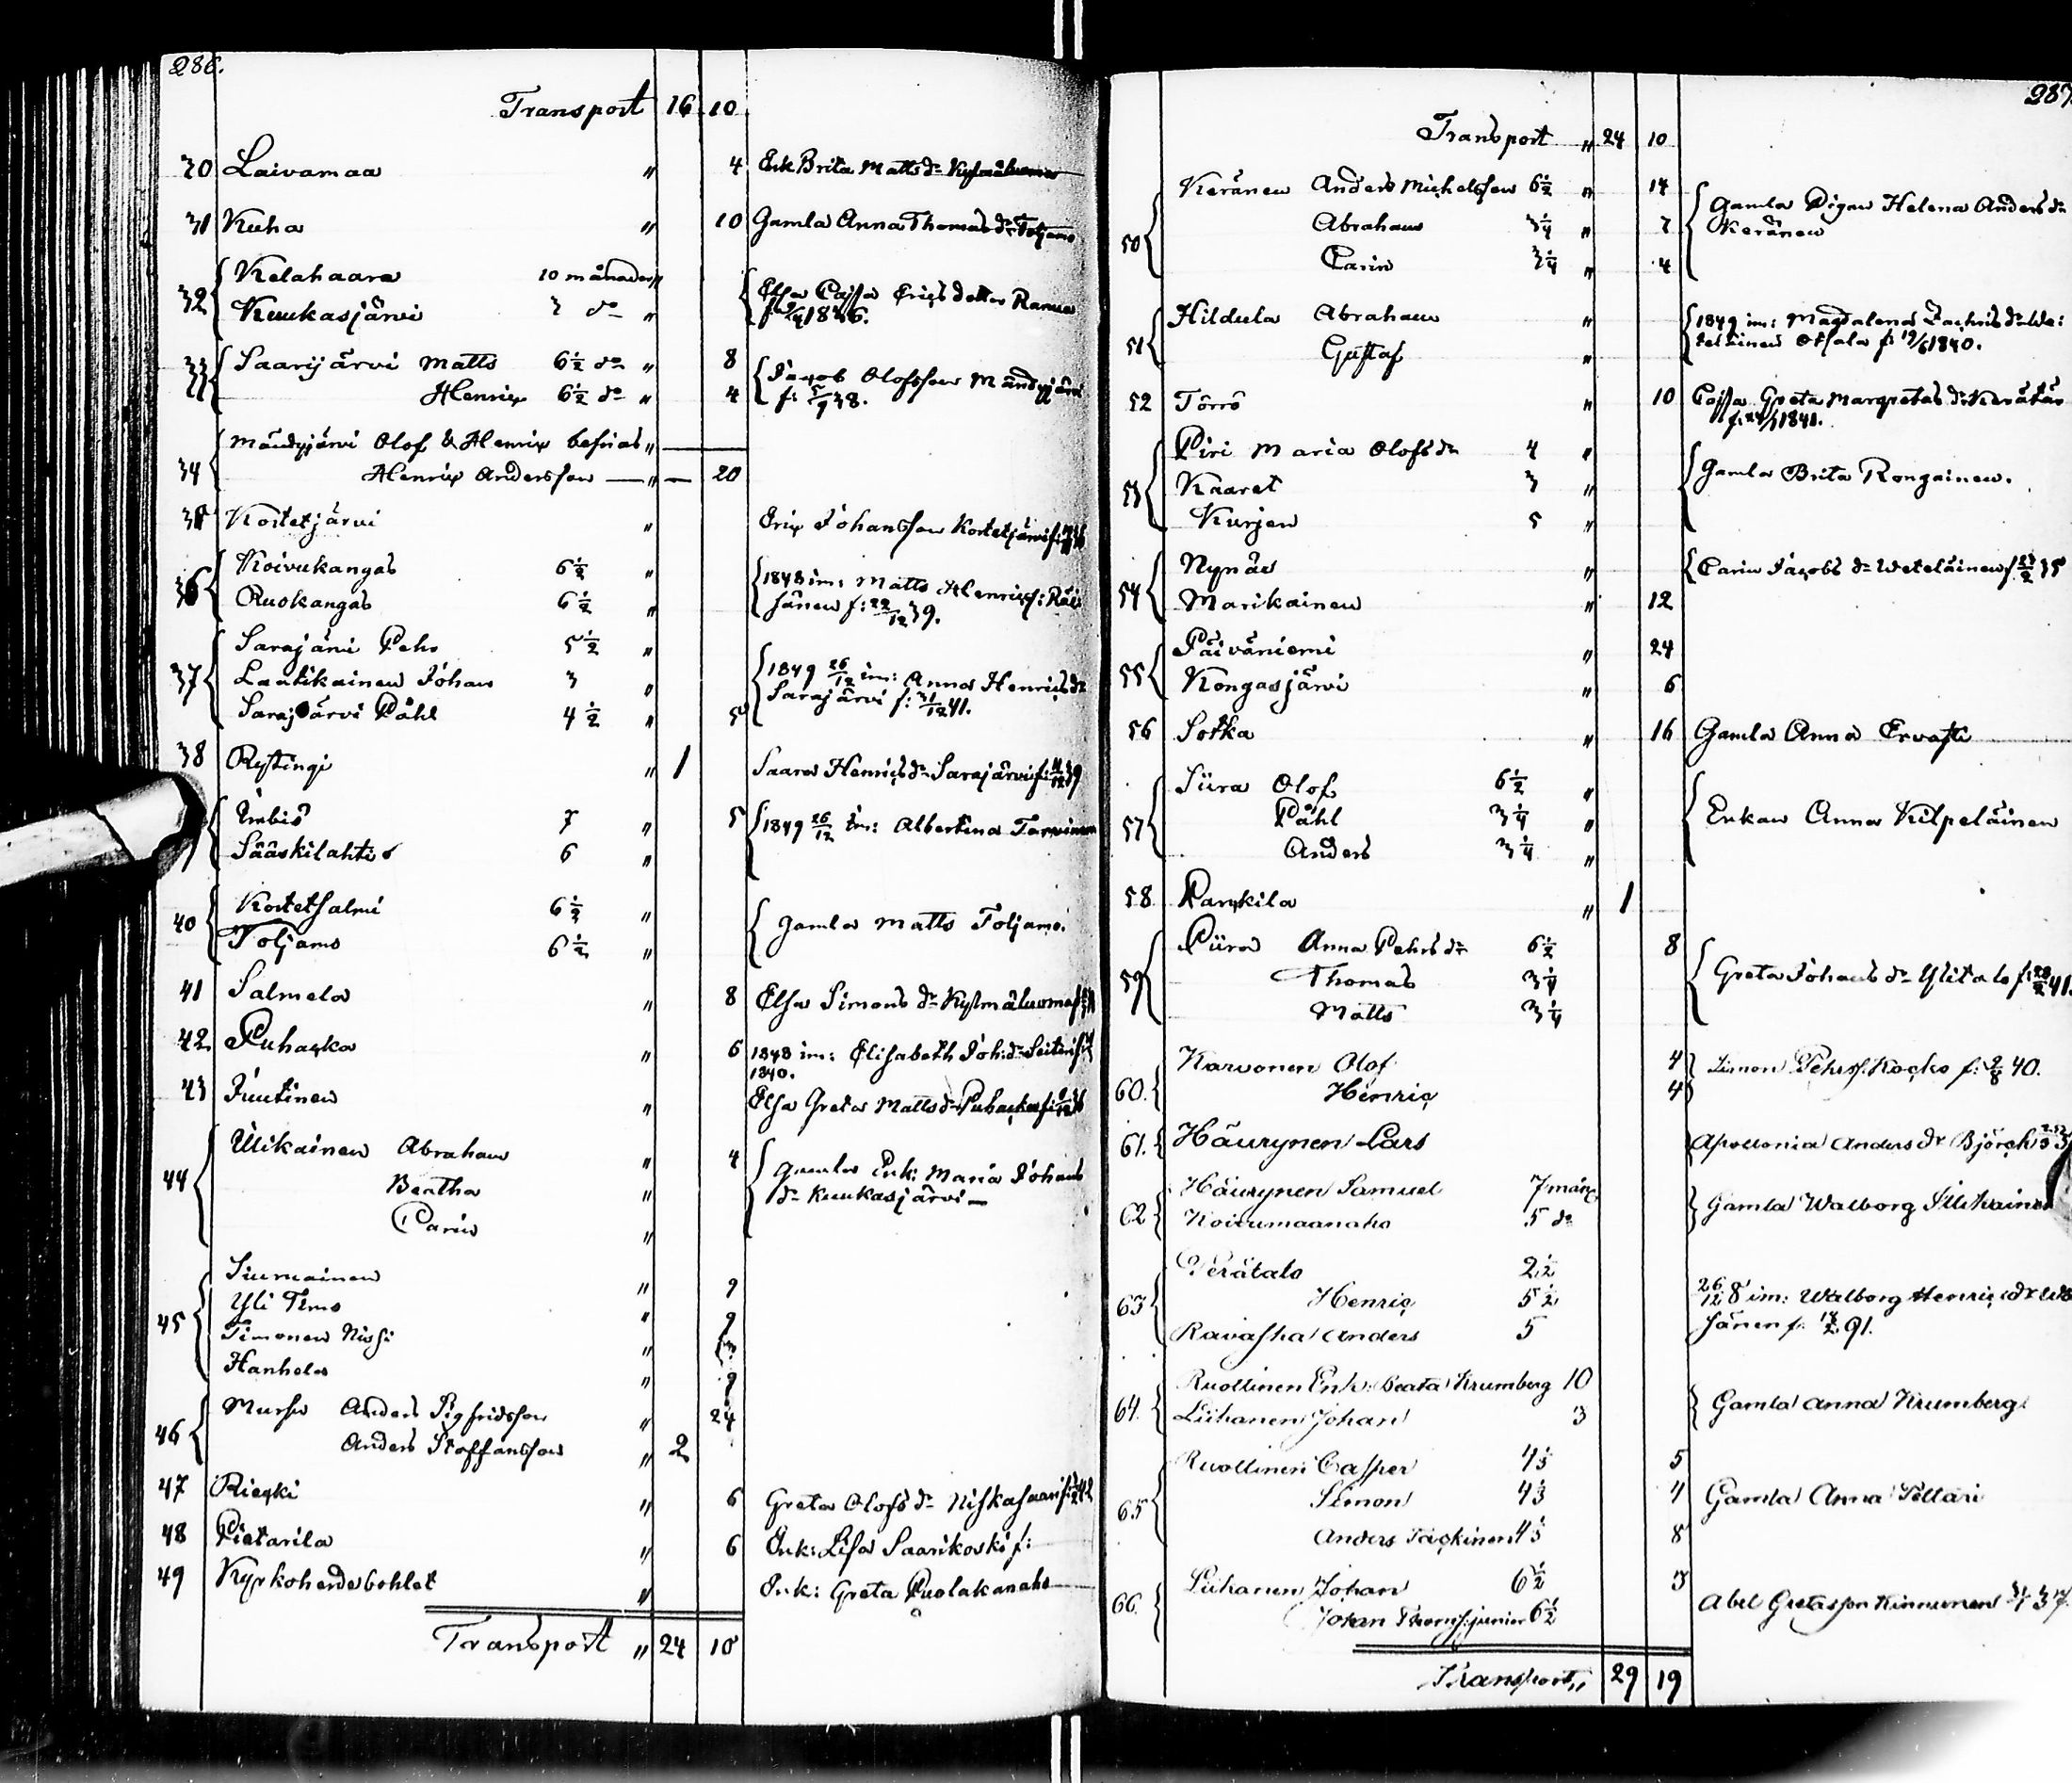 286.
Transport 16 10
30 Laivamaa " 4 Enk Brita Matts dr Kylmäluoma
31 Kuha " 10 Gamla Anna Thomas dr Toljamo
32 Kelahaara 10 månader "
Kuukasjärvi 2 do " Elsa Cajsa Erics dotter Ranua
f: 1846.
33 Saarijärvi Matts 6½ do " 8
Henric 6½ do " 4 Jacob Olofsson Mändyjärvi
f: 5/9 38.
34 Mändyjärvi Olof & Henric befrias "
Henric Andersson " 20
35 Kostetjärvi " Eric Johansson Kostetjärvi
36 Koivukangas 6½ "
Ruokangas 6½ " 1848 im: Matts Henrics: Räi
sänen f: 22/12 39.
37 Sarajärvi Pehr 5½ "
Lantikainen Johan 3 "
Sarajärvi Påhl 4½ " 5 1849 26/12 im: Anna Henrics dr
Sarajärvi f: 31/12 41.
38 Rytingi " 1 Saara Henrics dr Sarajärvi f: 11/12 39
Impiö 7 " 5 1849 26/12 im: Albertina Tarvinen
Sääskilahti 6 "
40 Kostetsalmi 6½ "
Toljamo 6½ " Gamla Matts Toljamo.
41 Salmela " 8 Elsa Simons dr Kylmäluoma
42. Puhacka " 6 1848 im: Elisabeth Joh: dr
1840.
43 Juutinen " Elsa Greta Matts dr Puhacka
44 Ulikainen Abraham " 4
Beatha "
Carin " Gamla Enk: Maria Johans
dr Kuukasjärvi
45 Siurnainen " 9
Yli Timo " 9
Timonen Nissi "
Hanhela " 9
46 Mursu Anders Sigfridsson " 24
Anders Staffansson " 2
47 Riecki " 6 Greta Olofs dr Niskasaari
48 Pietarila " 6 Enk: Lisa Saarikoski f:
49 Kyrkoherdebohlet " Enk: Greta Puolakanaho
Transport " 24 10
287
Transport " 24 10
50 Keränen Anders Michelsson 6½ " 14
Abraham 3¼ " 7
Carin 3¼ " 4 Gamla Pigan Helena Anders dr
Keränen
51 Hildula Abraham "
Gustaf " 1849 im: Magdalena Zachris dr We:
teläinen Otsala f: 19/6 1840.
52 Törrö " 10 Cajsa Greta Margretas dr Kerätär
f: 1841.
53 Piri Maria Olofs dr 4 "
Kaaret 3 "
Kurjen 5 " Gamla Brita Rongainen.
54 Nynäs " Carin Jacobs dr Weteläinen
Marikainen " 12
55 Päiväniemi " 24
Kongasjärvi " 6
56 Sotka " 16 Gamla Anna Ervasti
57 Siira Olof 6½ "
Påhl 3¼ "
Anders 3¼ " Enkan Anna Kilpeläinen
58 Parckila " 1
59 Piira Anna Pehrs dr 6½ 8
Thomas 3¼
Matts 3¼ Greta Johans dr Ylitalo
60. Karvonen Olof 4 Simon Pehrs. Kocko f: 2/8 40.
Henric 4
61. Häurynen Lars Apollonia Anders dr Björck
62 Häurynen Samuel 7 mån
Koivumaanaho 5 do Gamla Walborg Ulikainen
63 Perätalo 2½
Henric 5½
Ravaska Anders 5 26/12 8 im: Walborg Henrics dr
sänen f:
64. Ruottinen Enk: Beata Krumberg 10
Liihanen Johan 3 Gamla Anna Krumberg
65 Ruottinen Casper 4⅓ 5
Simon 4⅓ 4 Gamla Anna Tellari
Anders Täckinen 4⅓ 8
66. Liihanen Johan 6½ 3 Abel Gretasson Kinnunen
Johan Thomss: junior 6½
Transport " 29 19